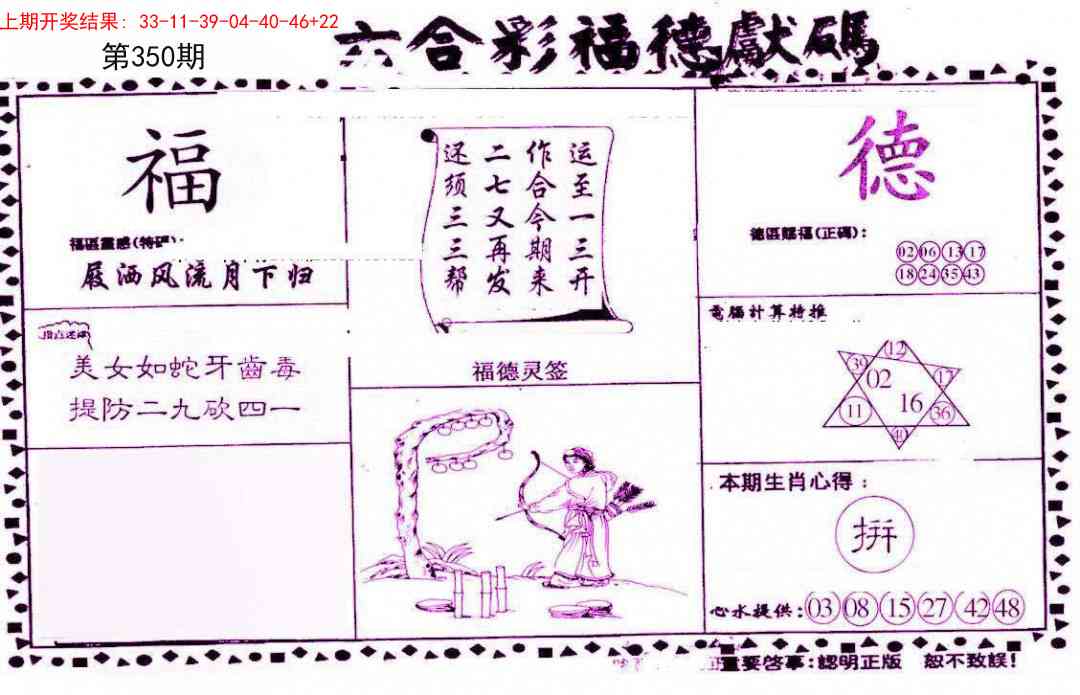 上期开奖结果: 33-11-39-04-40-46+22
第350期
六合彩福德獻碼
福
福區靈感(特碼):
屐洒风流月下归
美女如蛇牙齒毒
提防二九砍四一
运至一三开
作合今期来
二七又再发
还须三三帮
福德灵签
德
德區賜福(正碼):
02 06 13 17
18 24 35 43
電腦計算特推
12
39 02 17
11 16 36
40
本期生肖心得:
拼
心水提供: 03 08 15 27 42 48
重要啓事:認明正版 恕不致誤!